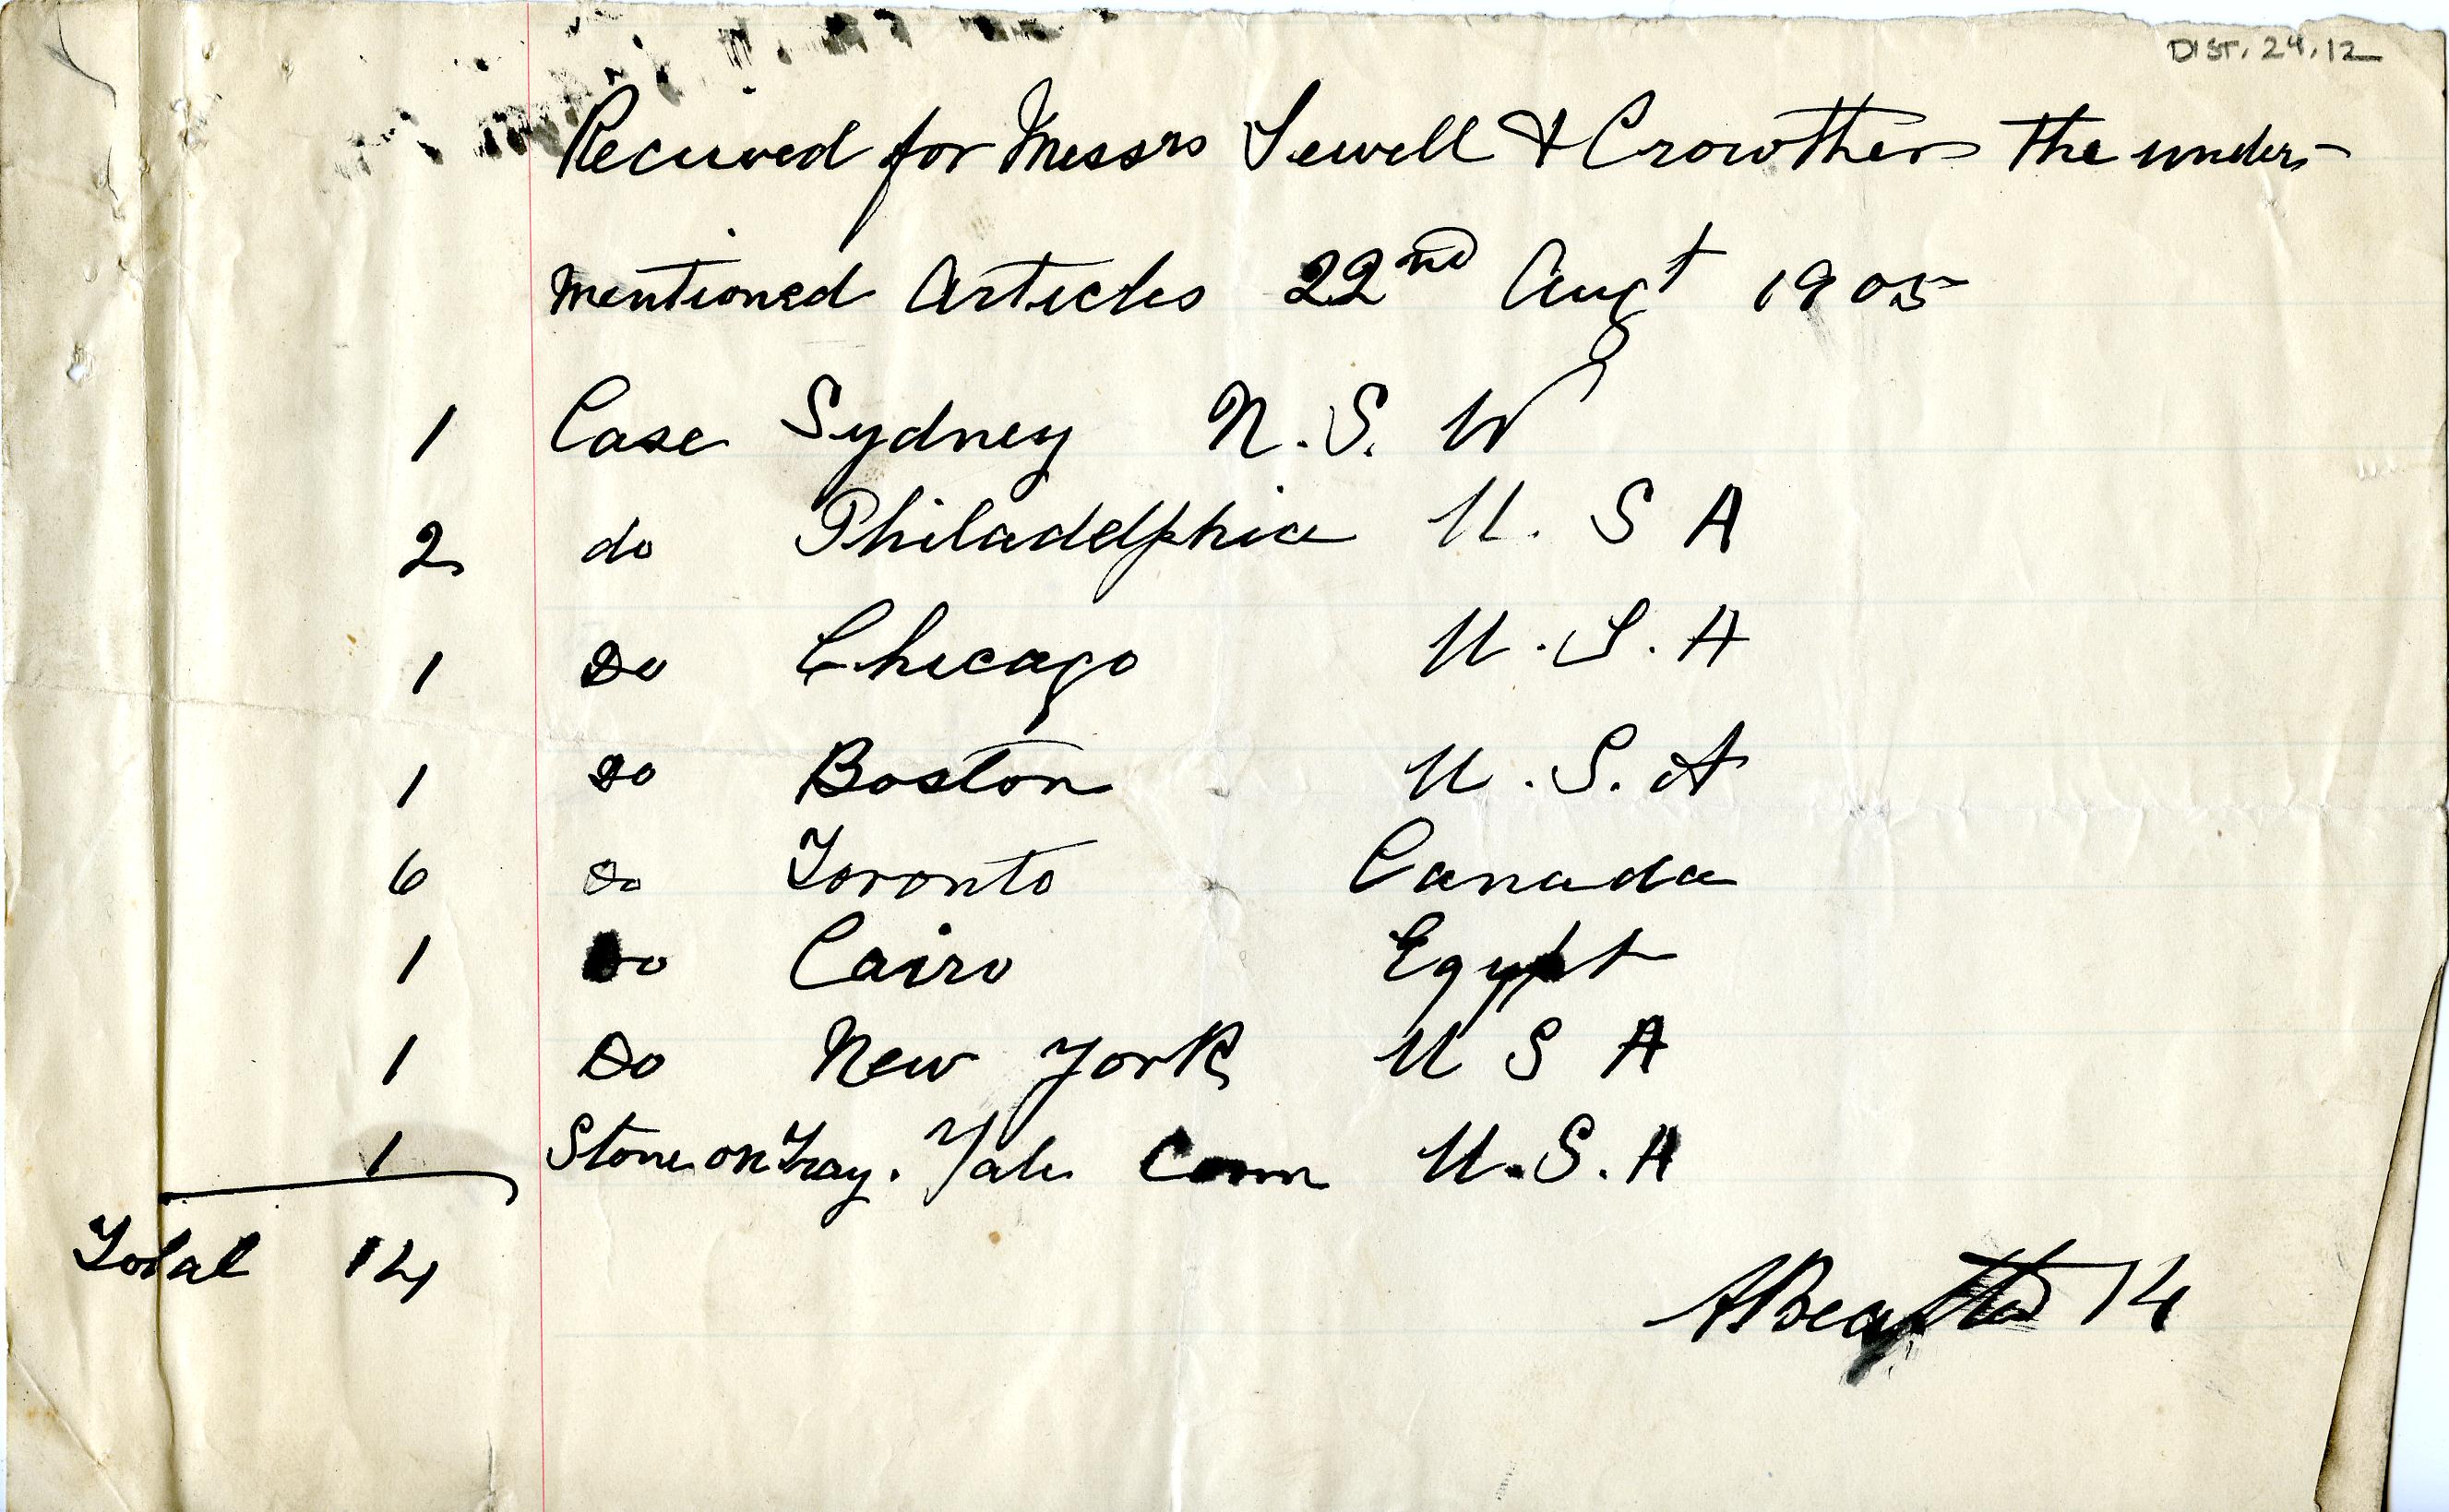 DIST. 24.12
Received for Messrs Sewell & Crowther the under-
mentioned Articles 22nd Augt 1905
1 Case Sydney N.S.W
2 do Philadelphia U.S A
1 Do Chicago U.S.A
1 Do Boston U.S.A
6 Do Toronto Canada
1 Do Cairo Egypt
1 Do New York U S A
1 Stone on Tray. Yale Conn U.S.A
Total 14
14